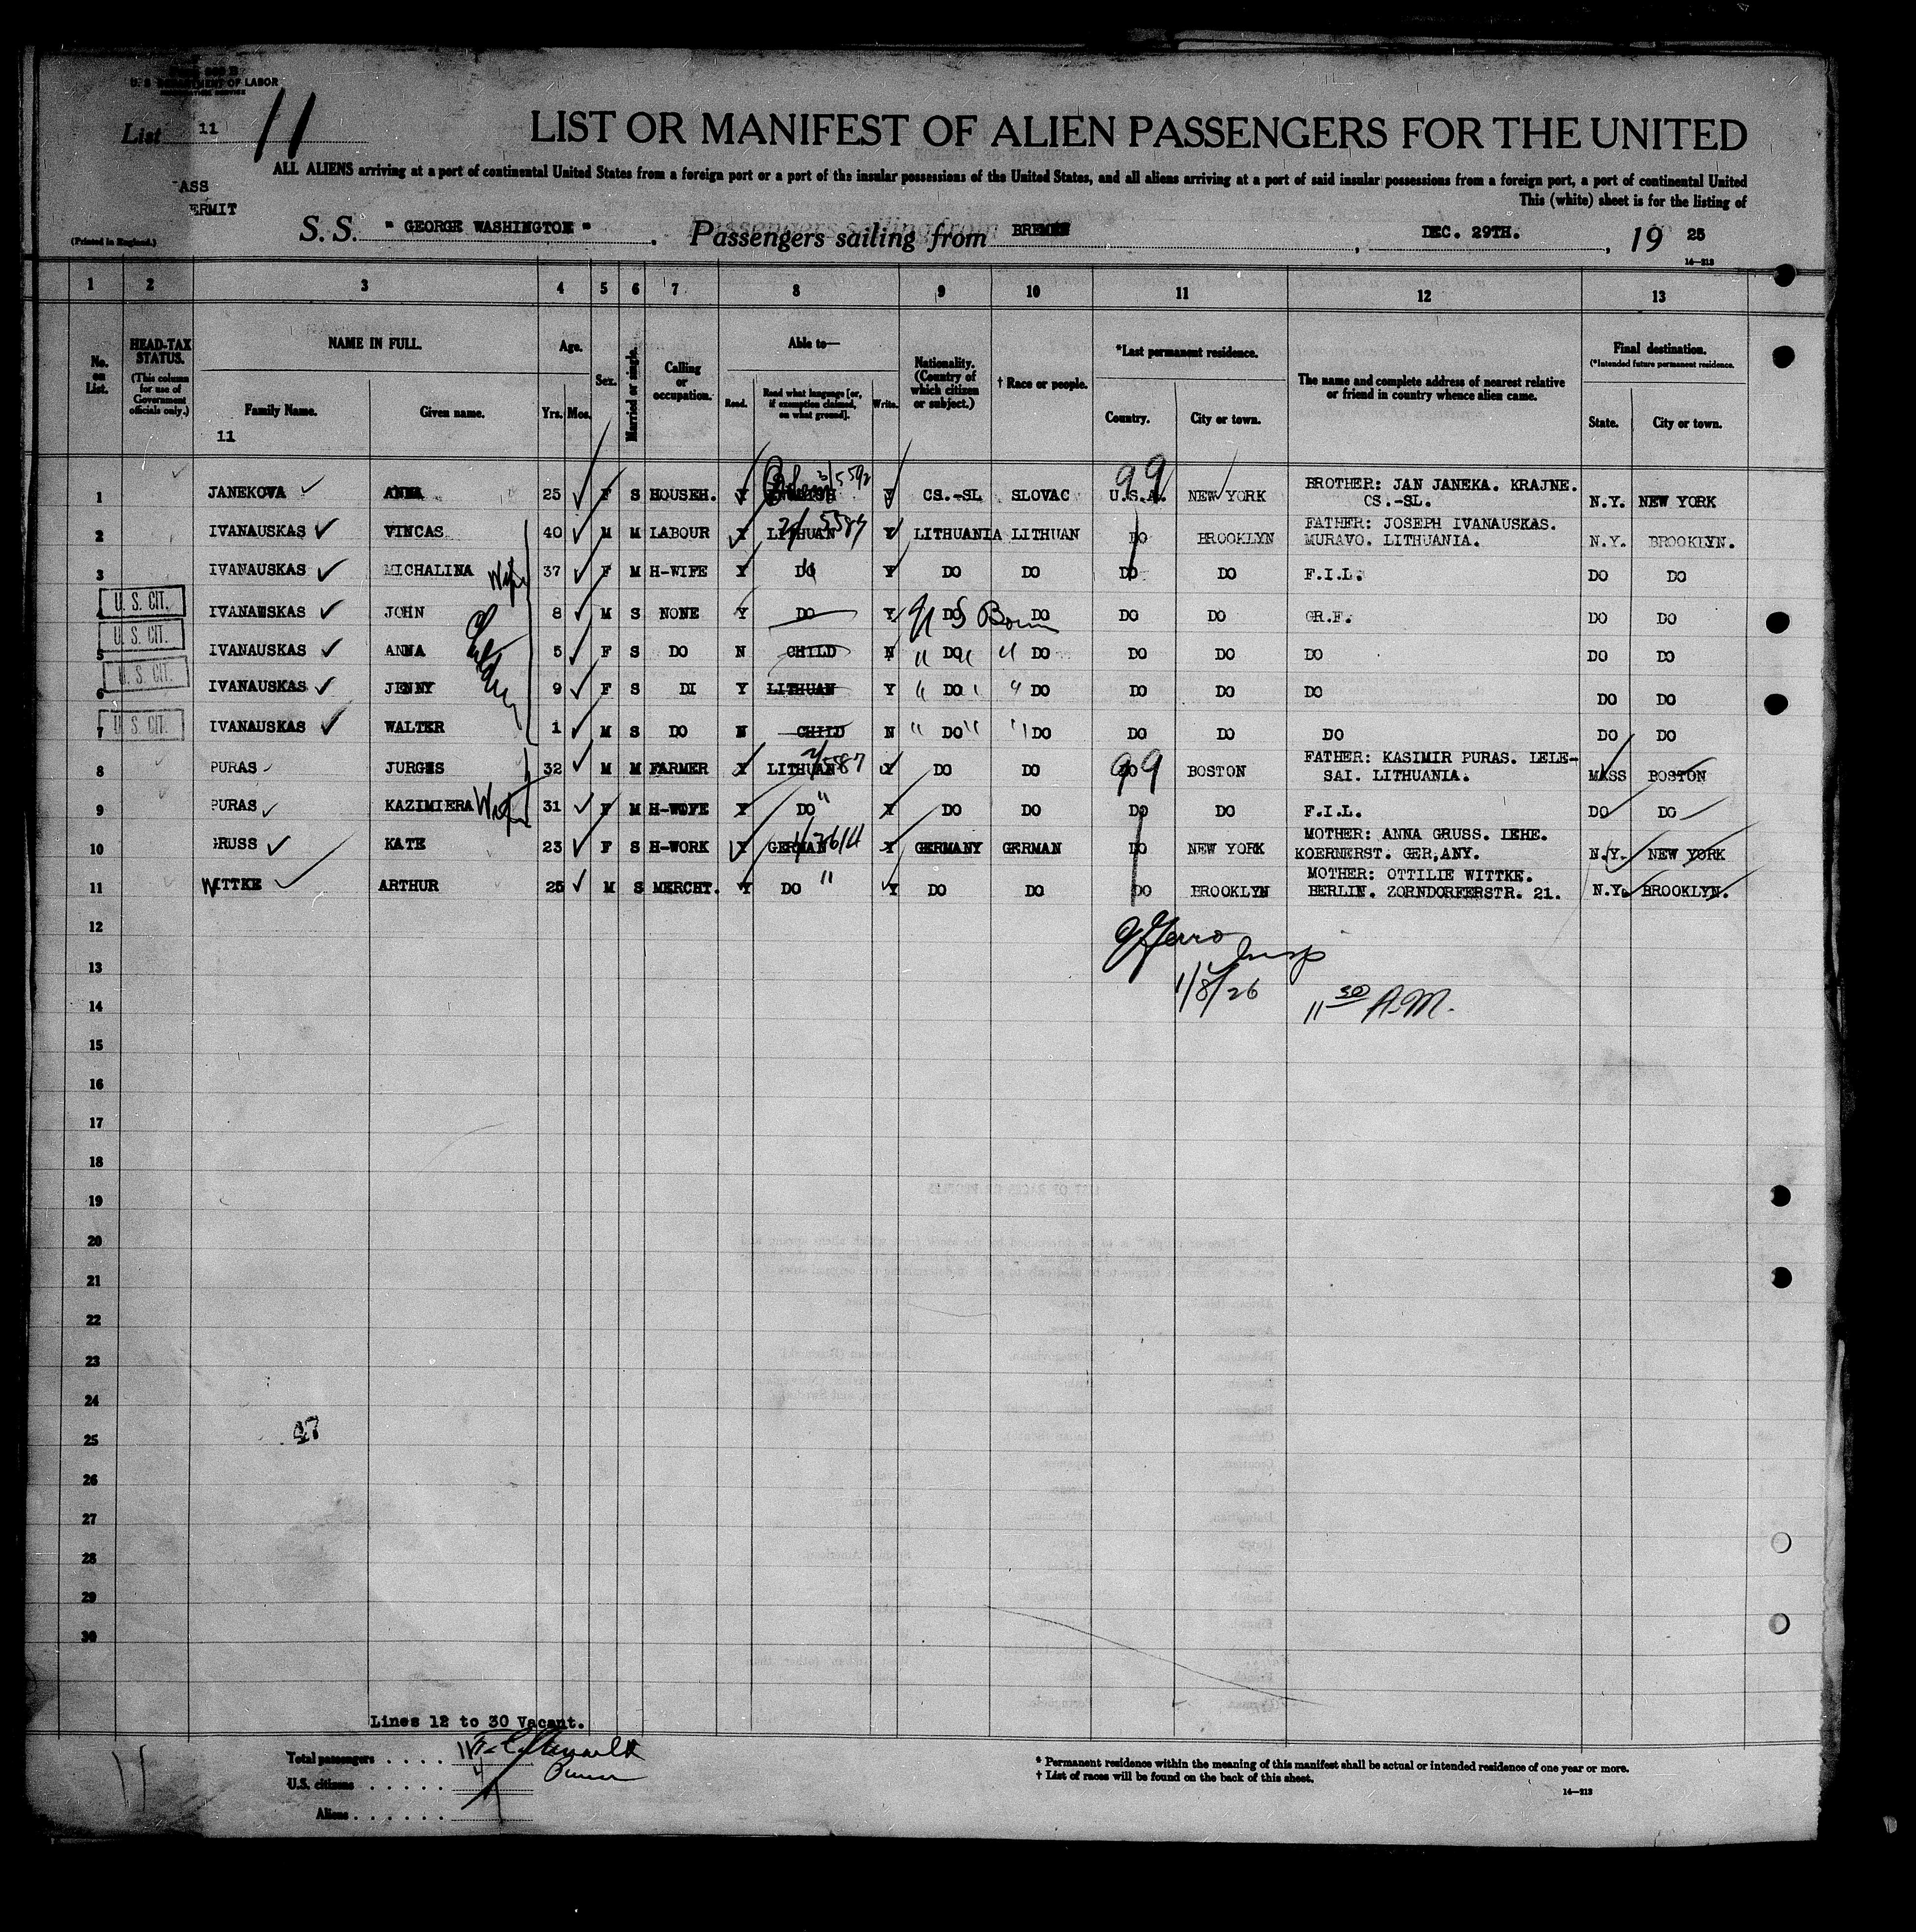 U. S. DEPARTMENT OF LABOR
List 11 11
LIST OR MANIFEST OF ALIEN PASSENGERS FOR THE UNITED
ALL ALIENS arriving at a port of continental United States from a foreign port or a port of the insular possessions of the United States, and all aliens arriving at a port of said insular possessions from a foreign port, a port of continental United
ASS
ERMIT
This (white) sheet is for the listing of
(Printed in England.)
S. S. " GEORGE WASHINGTON " . Passengers sailing from BREMEN , DEC. 29TH. , 19 25
14—213
1 2 3 4 5 6 7 8 9 10 11 12 13
No. on List.
HEAD-TAX STATUS. (This column for use of Government officials only.)
NAME IN FULL.
Family Name. Given name.
11
Age.
Yrs. Mos.
Sex.
Married or single.
Calling or occupation.
Able to—
Read. Read what language [or, if exemption claimed, on what ground]. Write.
Nationality. (Country of which citizen or subject.)
† Race or people.
*Last permanent residence.
Country. City or town.
The name and complete address of nearest relative or friend in country whence alien came.
Final destination.
(*Intended future permanent residence.
State. City or town.
1 JANEKOVA ANNA 25 F S HOUSEH. Y Y CS.-SL SLOVAC 99 U.S.A. NEW YORK BROTHER: JAN JANEKA. KRAJNE. CS.-SL. N.Y. NEW YORK
2 IVANAUSKAS VINCAS 40 M M LABOUR Y LITHUAN Y LITHUANIA LITHUAN DO BROOKLYN FATHER: JOSEPH IVANAUSKAS. MURAVO. LITHUANIA. N.Y. BROOKLYN.
3 IVANAUSKAS MICHALINA Wife 37 F M H-WIFE Y DO Y DO DO DO DO F.I.L. DO DO
4 U. S. CIT. IVANAUSKAS JOHN 8 M S NONE Y DO Y DO U S Born DO DO DO GR.F. DO DO
Children
5 U. S. CIT. IVANAUSKAS ANNA 5 F S DO N CHILD N " DO " " DO DO DO DO DO DO
6 U. S. CIT. IVANAUSKAS JENNY 9 F S DI Y LITHUAN Y " DO " " DO DO DO DO DO DO
7 U. S. CIT. IVANAUSKAS WALTER 1 M S DO N CHILD N " DO " " DO DO DO DO DO DO
8 PURAS JURGES 32 M M FARMER Y LITHUAN Y DO DO 99 DO BOSTON FATHER: KASIMIR PURAS. LELE- SAI. LITHUANIA. MASS BOSTON
9 PURAS KAZIMIERA Wife 31 F M H-WOFE Y DO " Y DO DO DO DO F.I.L. DO DO
10 GRUSS KATE 23 F S H-WORK Y GERMAN Y GERMANY GERMAN DO NEW YORK MOTHER: ANNA GRUSS. LEHE. KOERNERST. GER,ANY. N.Y. NEW YORK
11 WITTKE ARTHUR 25 M S MERCHT. Y DO " Y DO DO DO BROOKLYN MOTHER: OTTILIE WITTKE. BERLIN. ZORNDORFERSTR. 21. N.Y. BROOKLYN.
12
Insp
13
1/8/26 11 30 A.M.
14
15
16
17
18
19
20
21
22
23
24
25
26
27
28
29
30
Lines 12 to 30 Vacant.
Total passengers . . . . 11
U.S. citizens . . . . . 4
Aliens . . . . . .
11
* Permanent residence within the meaning of this manifest shall be actual or intended residence of one year or more.
† List of races will be found on the back of this sheet.
14—213